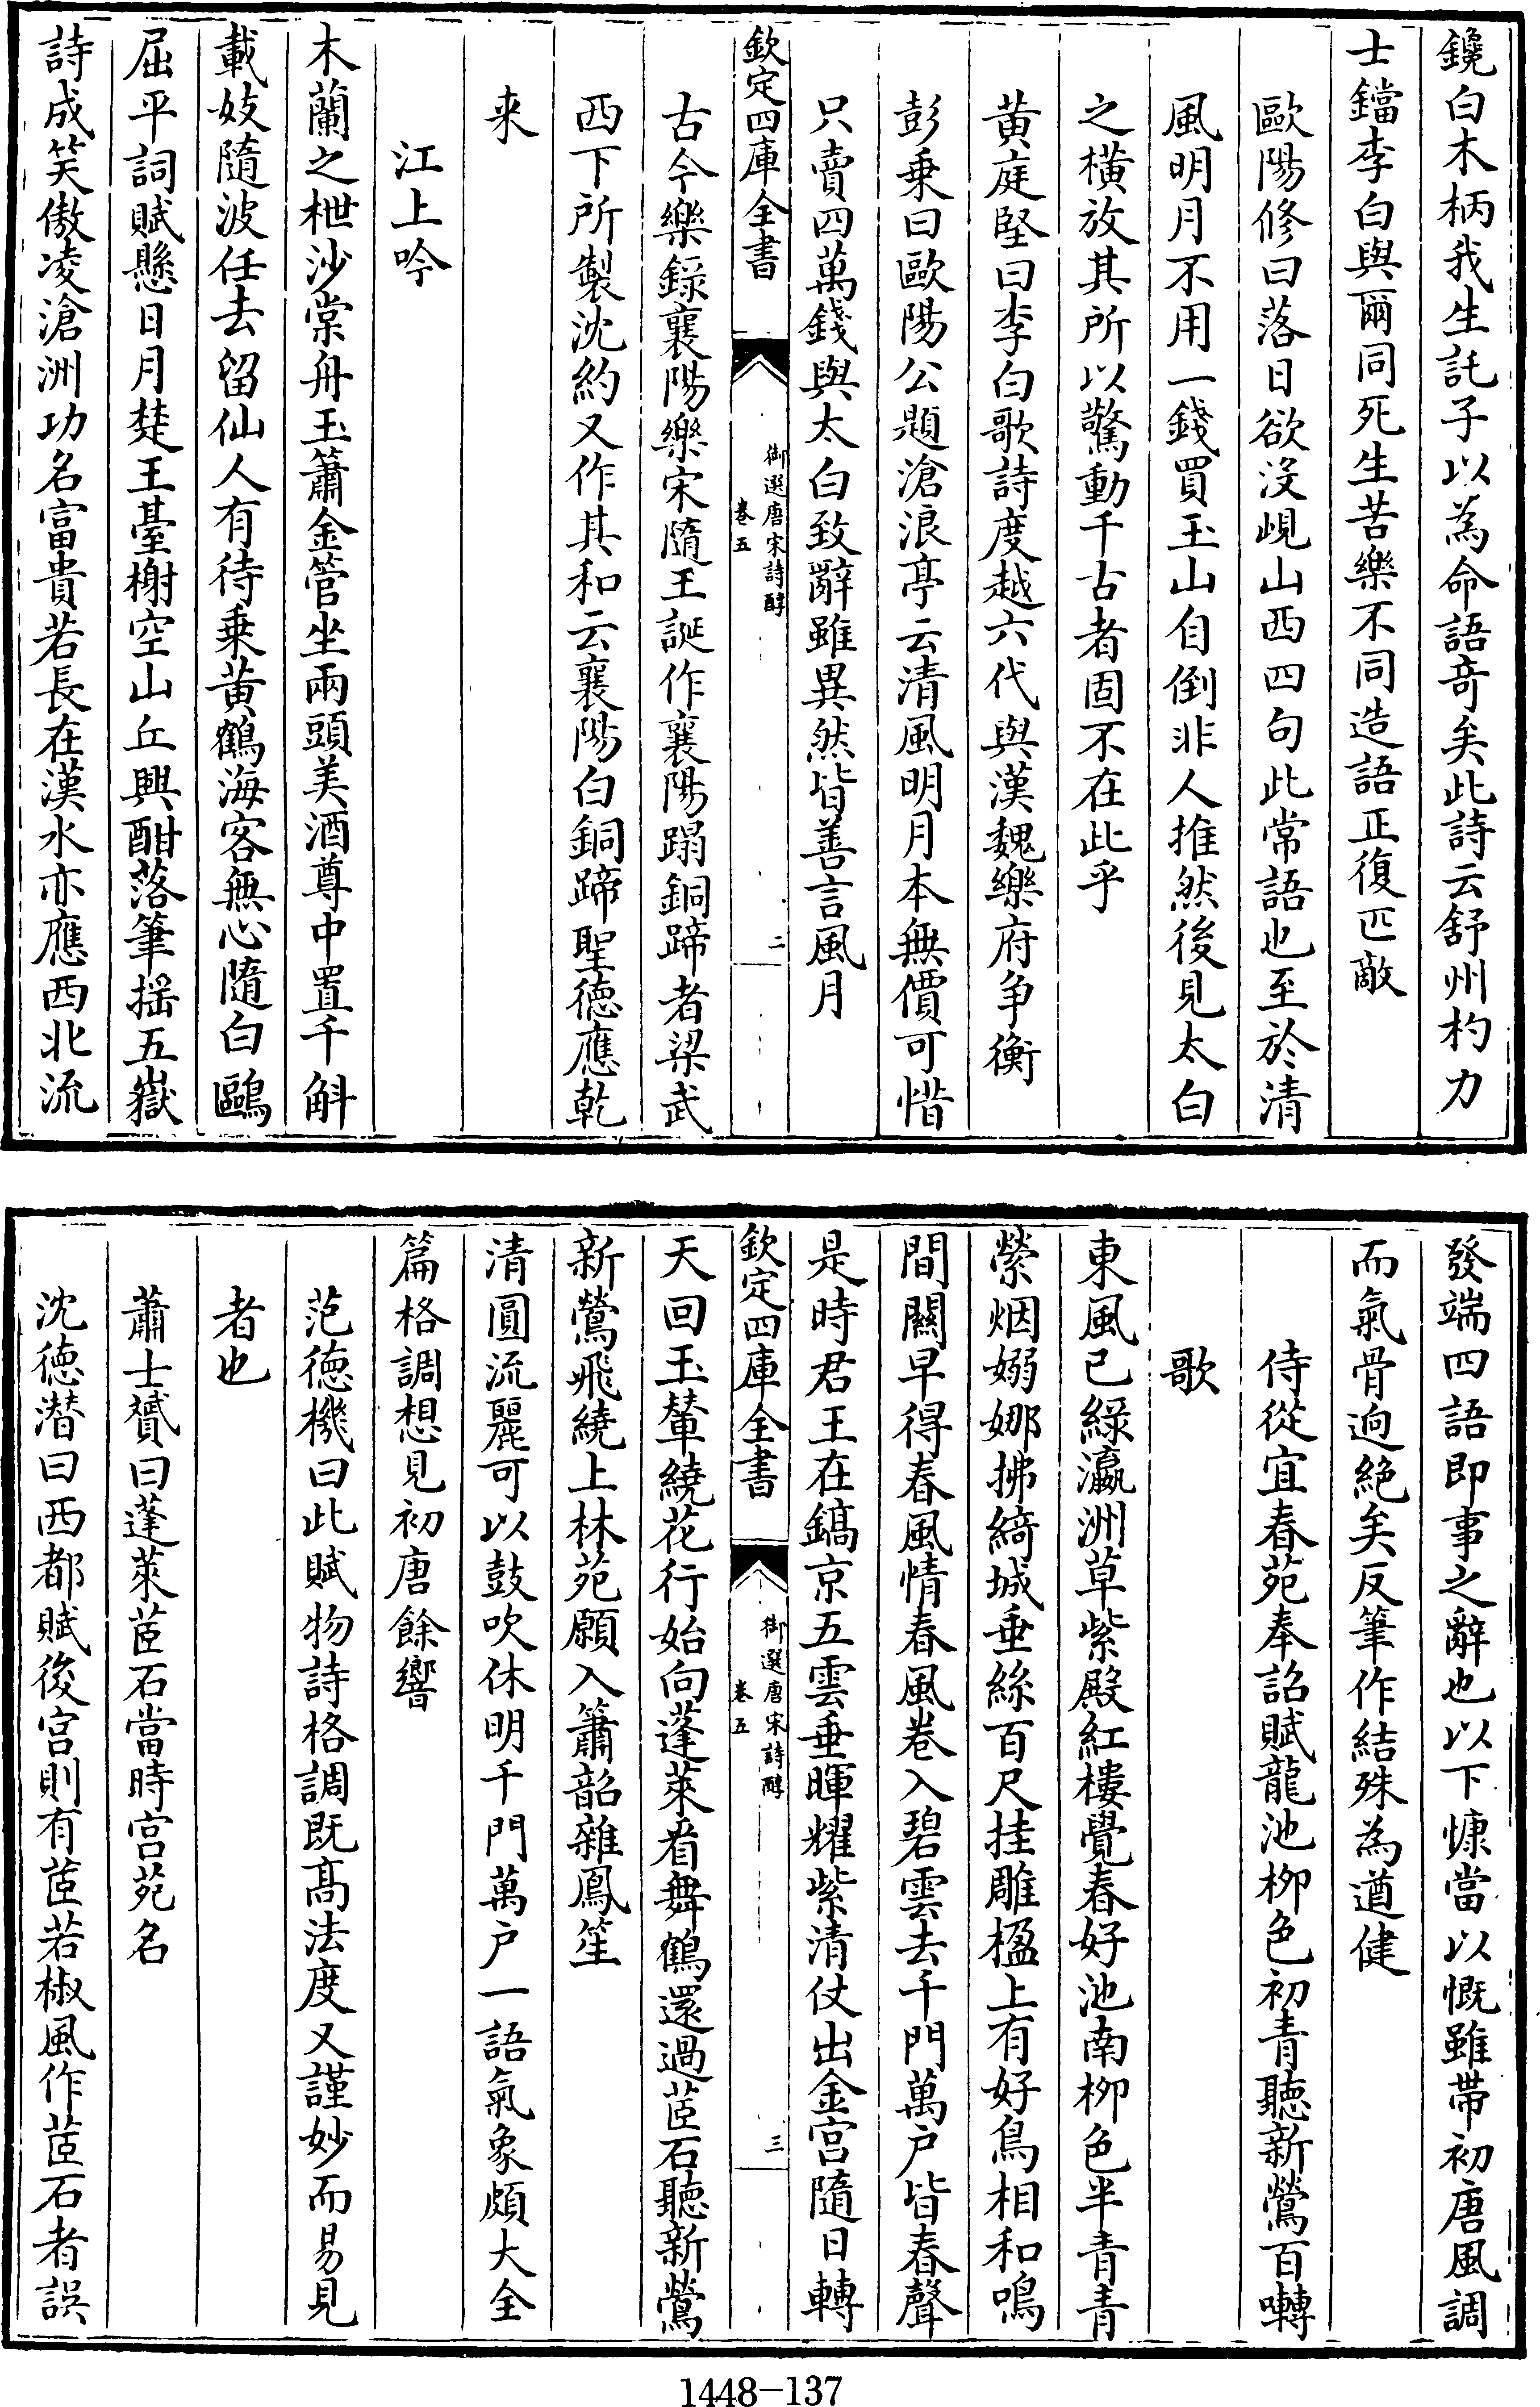 鑱白木柄我生託子以為命語竒矣此詩云舒州杓力
士鐺李白與爾同死生苦樂不同造語正復匹敵
歐陽修曰落日欲沒峴山西四句此常語也至於清
風明月不用一錢買玉山自倒非人推然後見太白
之橫放其所以驚動千古者固不在此乎
黄庭堅曰李白歌詩度越六代與漢魏樂府争衡
彭乗曰歐陽公題滄浪亭云清風明月本無價可惜
只賣四萬錢與太白致辭雖異然皆善言風月
欽定四庫全書
御選唐宋詩醇
卷五
二
古今樂錄襄陽樂宋隨王誕作襄陽蹋銅蹄者梁武
西下所製沈約又作其和云襄陽白銅蹄聖徳應乾
来
江上吟
木蘭之枻沙棠舟玉簫金管坐兩頭美酒尊中置千斛
載妓隨波任去留仙人有待乗黄鶴海客無心隨白鷗
屈平詞賦懸日月楚王臺榭空山丘興酣落筆揺五嶽
詩成笑傲凌滄洲功名富貴若長在漢水亦應西北流
發端四語即事之辭也以下慷當以慨雖帶初唐風調
而氣骨逈絶矣反筆作結殊為遒健
侍從宜春苑奉詔賦龍池桞色初青聽新鶯百囀
歌
東風已緑瀛洲草紫殿紅樓覺春好池南桞色半青青
縈烟嫋娜拂綺城垂絲百尺挂雕楹上有好鳥相和鳴
間闗早得春風情春風卷入碧雲去千門萬户皆春聲
是時君王在鎬京五雲垂暉耀紫清仗出金宫隨日轉
欽定四庫全書
御選唐宋詩醇
卷五
三
天回玉輦繞花行始向蓬萊看舞鶴還過茝石聽新鶯
新鶯飛繞上林苑願入簫韶雜鳳笙
清圓流麗可以鼓吹休明千門萬户一語氣象頗大全
篇格調想見初唐餘響
范徳機曰此賦物詩格調既髙法度又謹妙而易見
者也
蕭士贇曰蓬萊茝石當時宫苑名
沈徳潛曰西都賦後宫則有茝若椒風作茝石者誤
1448-137